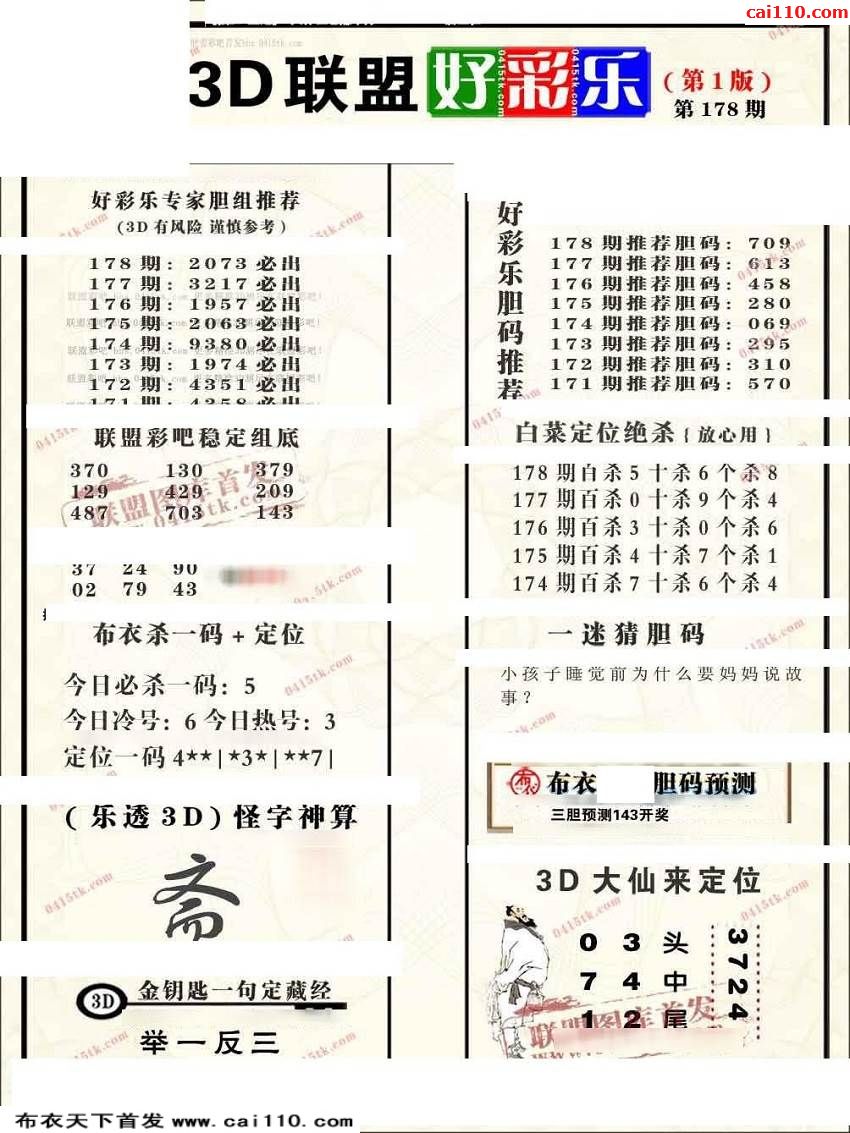 cai110.com
3D联盟好彩乐
(第1版)
第178期
好彩乐专家胆组推荐
(3D有风险 谨慎参考)
178期: 2073必出
177期: 3217必出
176期: 1957必出
175期: 2063必出
174期: 9380必出
173期: 1974必出
172期: 4351必出
171期: 4358必出
联盟彩吧稳定组底
370 130 379
129 429 209
487 703 143
37 24 90
02 79 43
布衣杀一码+定位
今日必杀一码: 5
今日冷号: 6 今日热号: 3
定位一码 4**|*3*|**7|
(乐透3D)怪字神算
斋
3D 金钥匙一句定藏经
举一反三
好彩乐胆码推荐
178期推荐胆码: 709
177期推荐胆码: 613
176期推荐胆码: 458
175期推荐胆码: 280
174期推荐胆码: 069
173期推荐胆码: 295
172期推荐胆码: 310
171期推荐胆码: 570
白菜定位绝杀{放心用}
178期百杀5十杀6个杀8
177期百杀0十杀9个杀4
176期百杀3十杀0个杀6
175期百杀4十杀7个杀1
174期百杀7十杀6个杀4
一迷猜胆码
小孩子睡觉前为什么要妈妈说故
事?
布衣 胆码预测
三胆预测143开奖
3D大仙来定位
0 3 头
7 4 中
1 2 尾
3724
联盟图库首发
0415tk.com
布衣天下首发 www.cai110.com